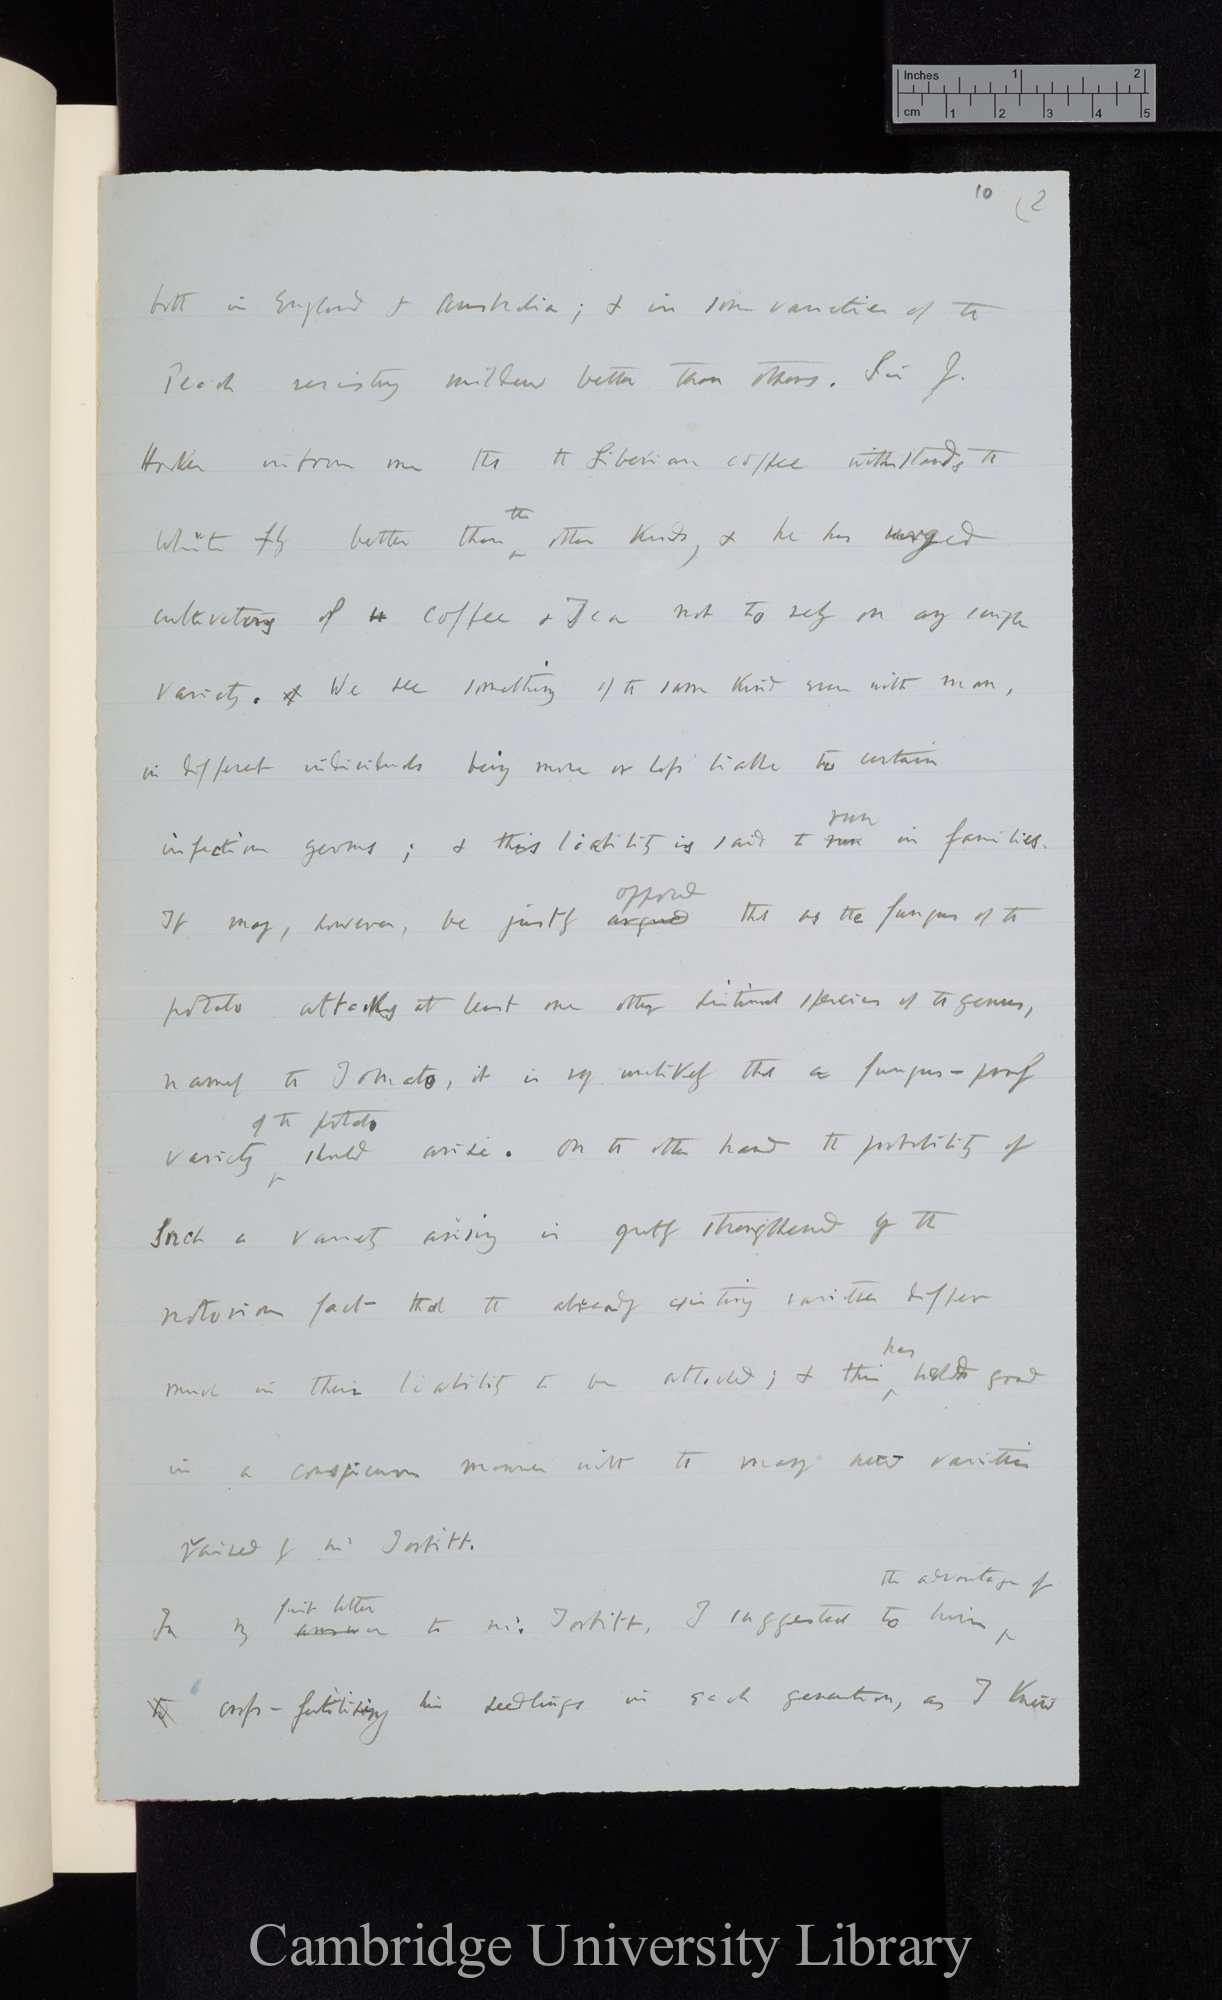 Inches 1 2
cm 1 2 3 4 5
10 (2
both in England & Australia; & in some varieties of the
Peach resisting mildew better than others. Sir J.
Hooker informs me that the Liberian coffee withstands the
white fly better than the other kinds, & he has urged
cultivators of coffee & Tea not to rely on any single
variety. We see something of the same kind even with man,
in different individuals being more or less liable to certain
infectious germs; & this liability is said to run run in families.
It may, however, be justly argued opposed that as the fungus of the
potato attacks at least one other distinct species of the genus,
namely the Tomato, it is very unlikely that a fungus-proof
variety of the potato should arise. On the other hand the probability of
such a variety arising is greatly strengthened by the
notorious fact that the already existing varieties differ
much in their liability to be attacked; & this has held good
in a conspicuous manner with the many new varieties
raised by Mr Torbitt.
In my answer first letter to Mr. Torbitt, I suggested to him the advantage of
to cross-fertilising his seedlings in each generation, as I knew
Cambridge University Library